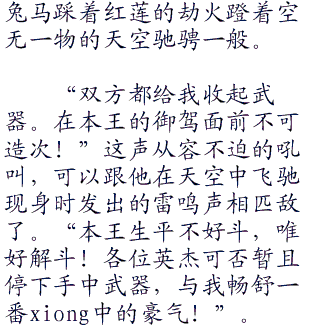 兔马踩着红莲的劫火蹬着空
无一物的天空驰骋一般。
“双方都给我收起武
器。在本王的御驾面前不可
造次！”这声从容不迫的吼
叫，可以跟他在天空中飞驰
现身时发出的雷鸣声相匹敌
了。“本王生平不好斗，唯
好解斗！各位英杰可否暂且
停下手中武器，与我畅舒一
番xiong中的豪气！”。